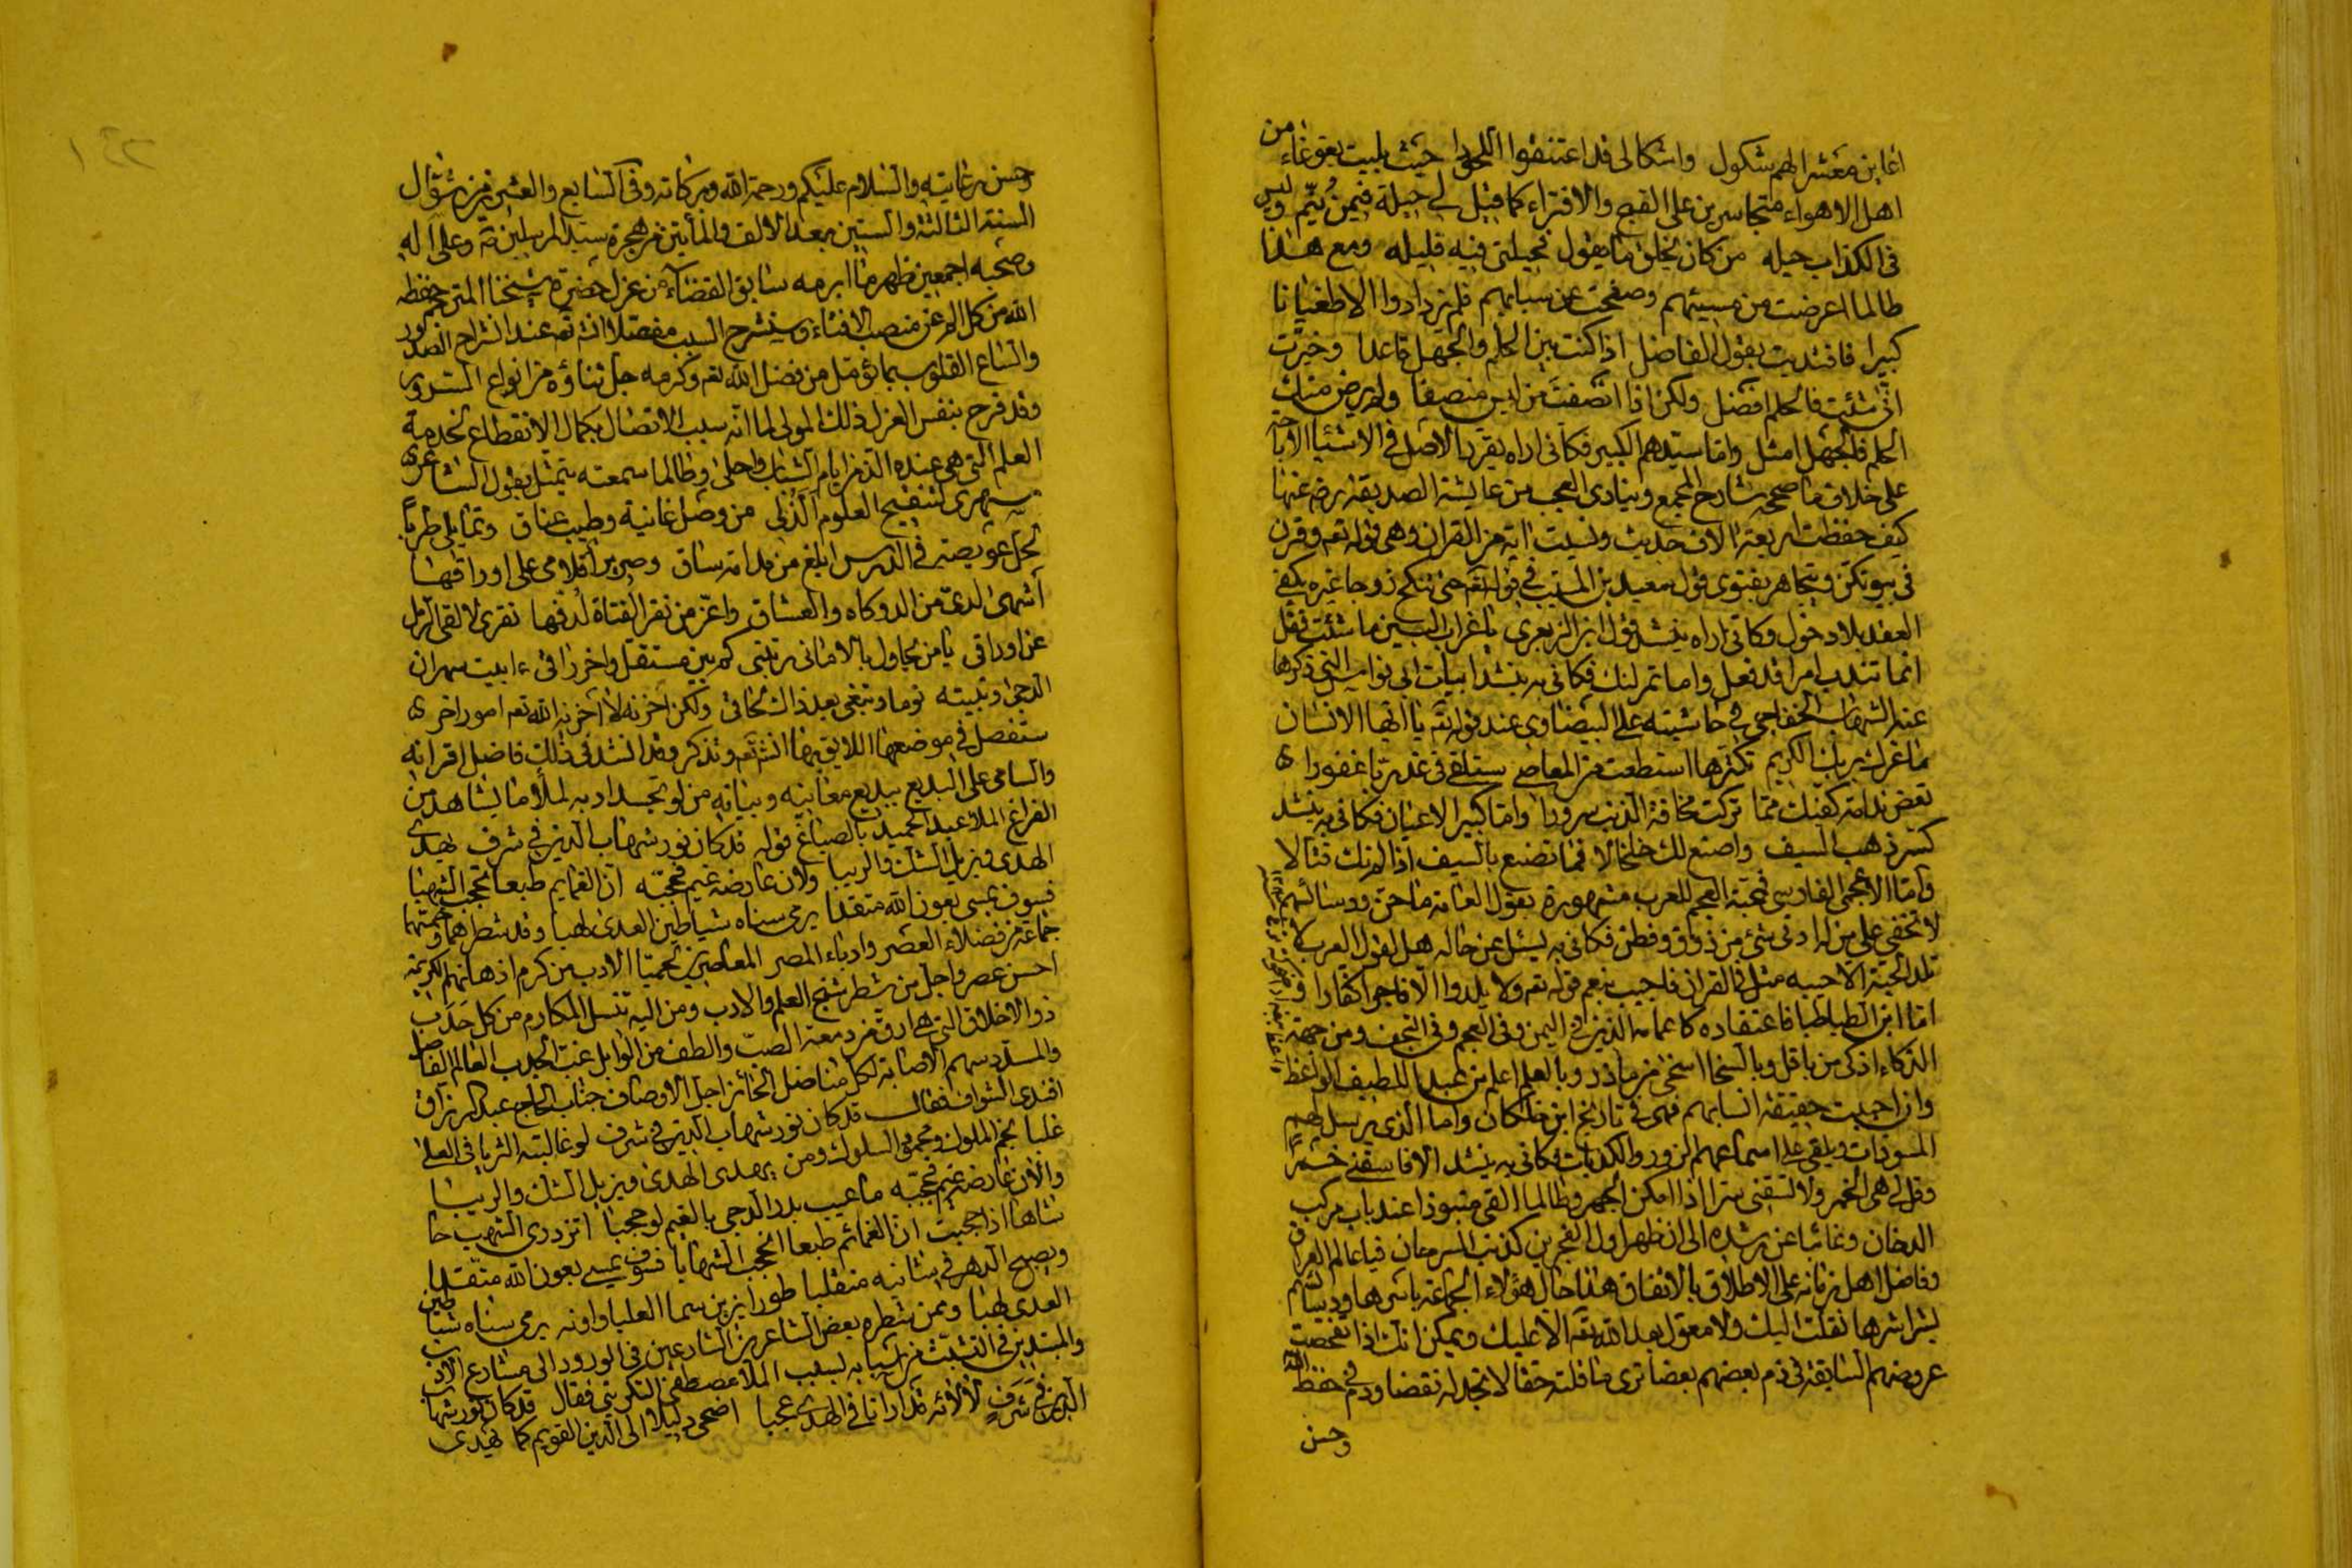 اعاين معشرا لهم شكول واشكالى قد اعتنقوا اللحودا حيث بليت بغوغاء من
اهل الاهواء متجاسرين على القبح والافتراء كما قيل لي حيلة فيمن ينم وليس
فى الكذاب حيله من كان يخلق ما يقول فحيلتى فيه قليله ومع هذا
طالما اعرضت من مسيئهم وصفحت عن سبابهم فلم يزدادوا الا طغيانا
كبيرا فاقتديت بقول الفاضل اذا كنت بين الحلم والجهل قاعدا وخيرت
انى شئت فالحلم افضل ولكن اذا انصفت من ليس منصفا ولم يرض منك
الحلم فالجهل امثل واما سيدهم الكبير فكانى اراه يقرر الاصل فى الاشيا الاباحة
على خلاف ما صححه شارح المجمع وينادى العجب من عايشة الصديقة رضى عنها
كيف حفظت اربعة الاف حديث ونسيت اية من القران وهى قوله تعه وقرن
فى بيوتكن ويتجاهر بفتوى قول سعيد بن المسيب في قوله تعه حتى تنكح زوجا غيره يكفى
العقد بلا دخول وكانى اراه ينشد قول ابن الزبعرى يا غراب البين ما شئت فقل
انما تندب امرا قد فعل واما تمرلنك فكانى به ينشد ابيات ابى نواس التى ذكرها
عنه الشهاب الخفاجى في حاشيته على البيضاوى عند قوله تعه يا ايها الانسان
ما غرك بربك الكريم تكثر ما استطعت من المعاصى ستلقى فى غد ربا غفورا
تعض ندامة كفيك مما تركت مخافة الذنب سرورا واما كبير الاعيان فكانى به ينشد
كسر ذهب السيف واصنع لك خلخالا فما تصنع بالسيف اذا لم تك قتالا
واما الاعجمى الفارسى فمحبة العجم للعرب مشهورة بقول العامة ما حق ودسائسهم
لا تخفى على من له ادنى شئ من ذوق وفطن فكانى به يسئل عن حاله هل لقول العرب
تلد الحية الا حييه مثل فى القران فاجيب بنعم قوله تعه ولا يلدوا الا فاجرا كفارا و
اما ابن الطباطبا فاعتقاده كاعمامه الذين فى اليمن وفى العجم وفى النجف ومن جهة
الذكاء اذكى من باقل وبالسخا اسخى من مادر وبالعلم اعلم من عبد اللطيف الواعظ
وان احببت حقيقة انسابهم فهى فى تاريخ ابن خلكان واما الذى يرسل لهم
المسودات ويلقى على اسماعهم الزور والكذبات فكانى به ينشد الا فاسقنى خمرا
وقل لى هى الخمر ولا تسقنى سرا اذا امكن الجهر وطالما القى منبوذا عند باب مركب
الدخان وغائبا عن رشده الى ان ظهر اول الفجرين كذنب السرحان فيا عالم العراق
وفاضل اهل زمانه على الاطلاق بالاتفاق هذا حال هؤلاء الجماعة باسرها ودسائسهم
بشراشرها نقلت اليك ولا معول بعد الله تعه الا عليك ويمكن انك اذا تفحصت
عروضهم السابقة فى ذم بعضهم بعضا ترى ما قلته حقا لا تجد له نقضا ودم في حفظ الله
وحسن
وحسن رعايته والسلام عليكم ورحمة الله وبركاته وفى السابع والعشرين من شوال
السنة الثالثة والستين بعد الالف والمأيتين من هجرة سيد المرسلين صه وعلى اله
وصحبه اجمعين ظهر ما ابرمه سابق القضاء من عزل حضرة شيخنا المترجم حفظه
الله من كل الم عن منصب الافتاء وسيشرح السبب مفصلا انشه تعه عند انشراح الصدور
واتساع القلوب بما نؤمل من فضل الله تعه وكرمه جل ثناؤه من انواع السرور
وقد فرح بنفس العزل ذلك المولى لما انه سبب الاتصال بكمال الانقطاع لخدمة
العلم التى هى عنده الذ من ايام الشباب واحلى وطالما سمعته يتمثل بقول الشاعر
سهرى لتنقيح العلوم الذ لى من وصل غانية وطيب عناق وتمايلى طربا
لحل عويصة فى الدرس ابلغ من مدامة ساق وصرير اقلامى على اوراقها
اشهى لدى من الدوكاه والعشاق والذ من نقر الفتاة لدفها نقرى لالقى الرمل
عن اوراقى يا من يحاول بالامانى رتبتى كم بين مستفل واخر راقى ءابيت سهران
الدجى وتبيته نوما وتبغى بعد ذاك لحاقى ولكن احزنه لا احزنه الله تعه امور اخر
ستفصل فى موضعها اللايق بها انشه تعه وتذكر وقد انشد فى ذلك فاضل اقرانه
والسامى على البديع ببديع معانيه وبيانه من لو تجسد ادبه لملأ ما يشاهد من
الفراغ الملا عبد الحميد بالصباغ قوله قد كان نور شهاب الدين في شرف يهدى
الهدى ويزيل الشك والريبا والان عارضه غيم فحجبه ان الغمايم طبعا تحجب الشهبا
فسوف يمسى بعون الله متقدا يرمى سناه شياطين العدى لهبا وقد شطرهما وخمسهما
جماعة من فضلاء العصر وادباء المصر المعاصرين لحميا الادب من كرم اذهانهم الكريمة
احسن عصر واجل من شطر شيخ العلم والادب ومن اليه تنسل المكارم من كل حدب
ذو الاخلاق التى هى ارق من دمعة الصب والطف من الوابل غب الجدب العالم الفاضل
والمسدد سهم الاصابة لكل مناضل الحائز اجل الاوصاف جناب الحاج عبد الرزاق
افندى الشواف فقال قد كان نور شهاب الدين في شرف لو غالبته الثريا فى العلى
غلبا نجم الملوك ومحمى السلوك ومن يهدى الهدى ويزيل الشك والريبا
والان عارضه غيم فحجبه ما عيب بدر الدجى بالغيم لو حجبا اتزدرى الشهب حا
شاها اذا حجبت ان الغمائم طبعا تحجب الشهابا فسوف يمسى بعون الله متقدا
ويصبح الدهر فى شانيه منقلبا طورا يزين سما العليا واونه يرمى سناه شياطين
العدى لهبا وممن شطره بعض الشاعرين الشارعين فى الورود الى مشارع الادب
والمبتدين فى التشبث من اسبابه لسبب الملا مصطفى التكريتى فقال قد كان نور شهاب
الدين في شرف لألائه قد ارانا فى الهدى عجبا اضحى دليلا الى الدين القويم كما يهدى